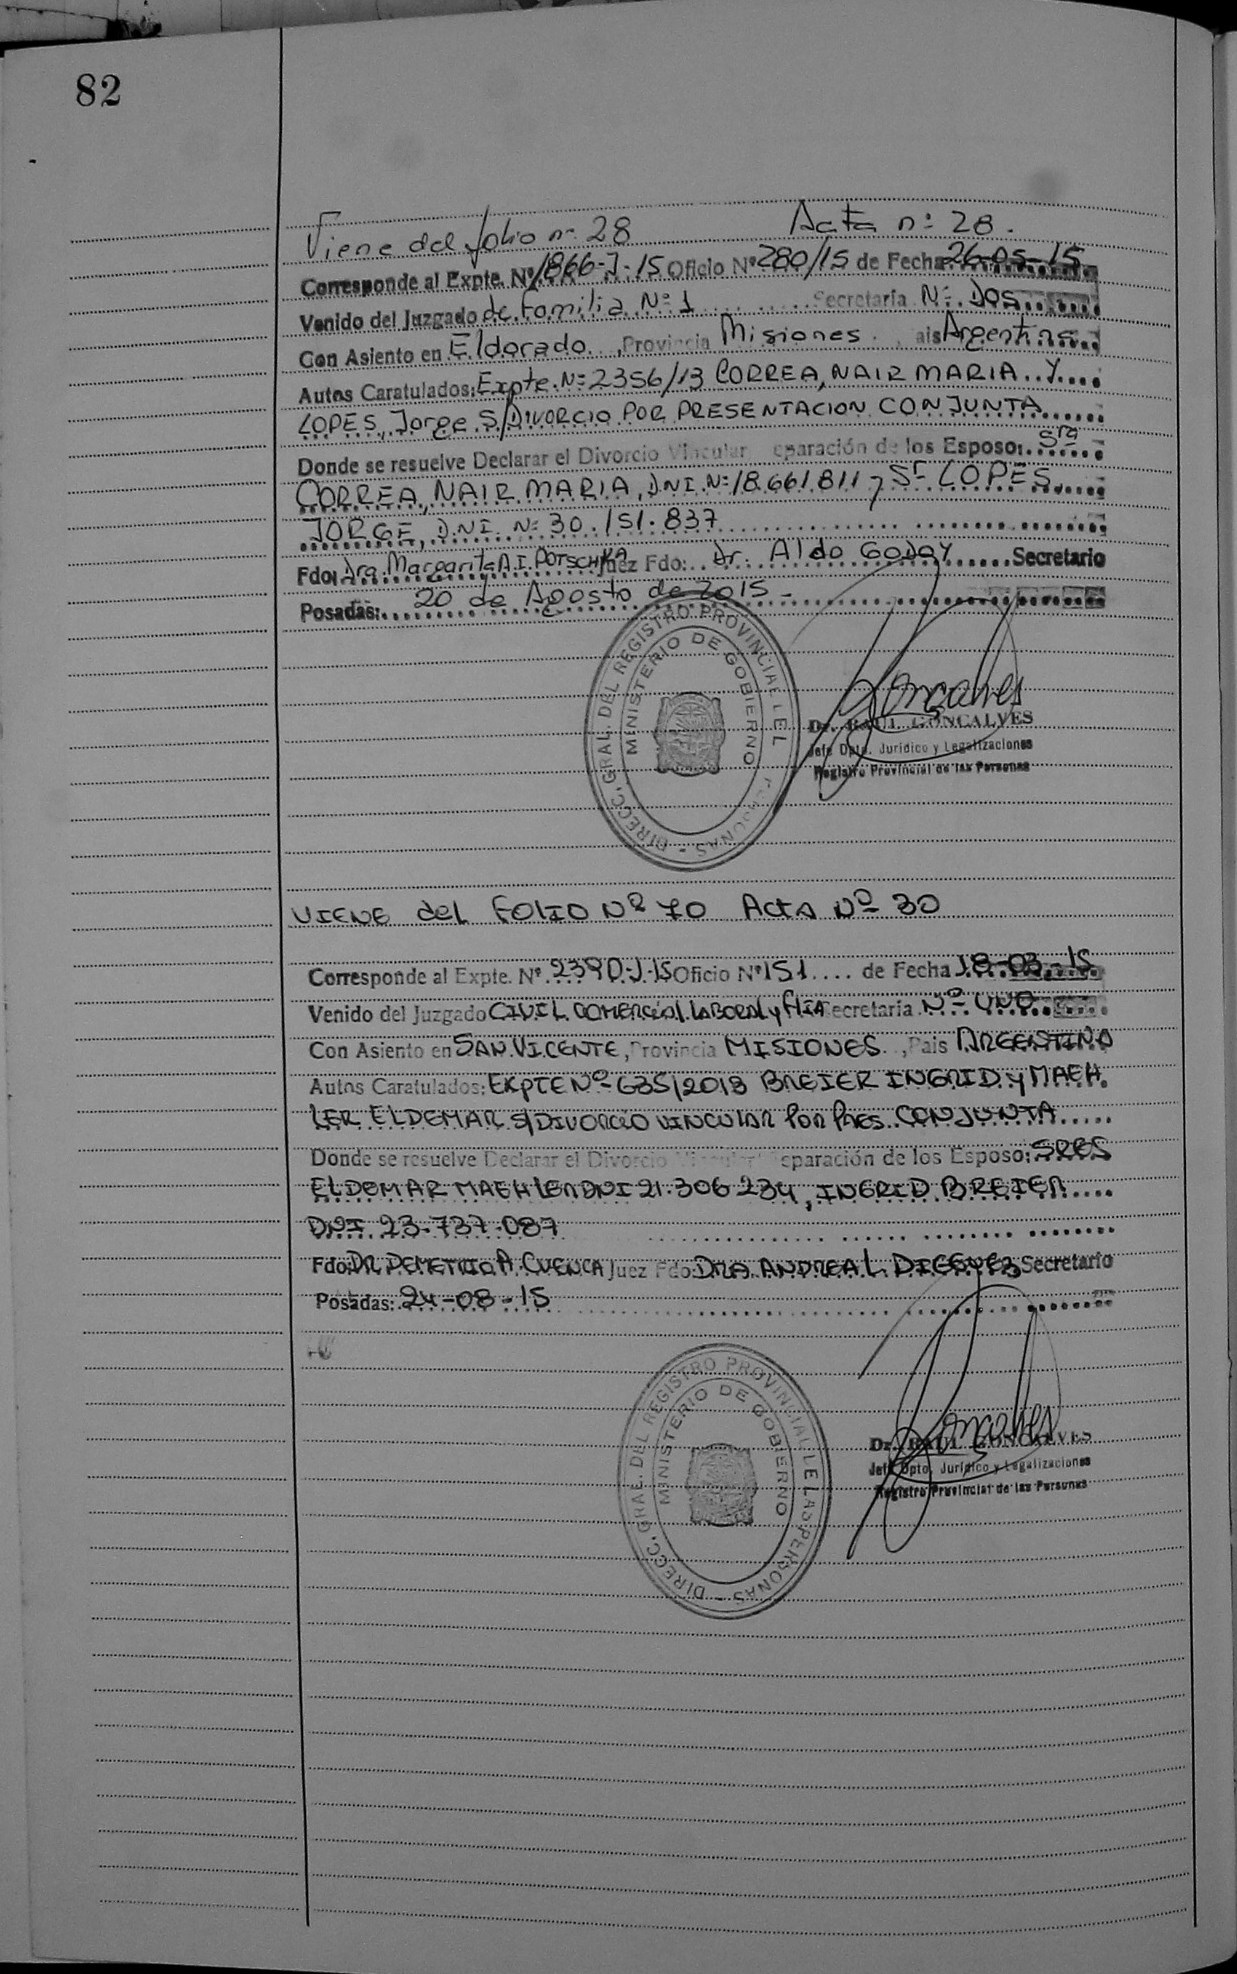 82
Viene del folio nº 28 Acta nº 28.
Corresponde al Expte. Nº 1866-J-15 Oficio Nº 280/15 de Fecha 26-05-15
Venido del Juzgado de Familia Nº 1 Secretaría Nº Dos
Con Asiento en Eldorado, Provincia Misiones, aís Argentina
Autos Caratulados: Expte. Nº 2356/13 CORREA, NAIR MARIA Y
LOPES, Jorge S/DIVORCIO POR PRESENTACION CONJUNTA
Donde se resuelve Declarar el Divorcio Vincular eparación de los Esposo: Sra
CORREA, NAIR MARIA, DNI. Nº 18.661.811 y Sr LOPES
JORGE, D.N.I. Nº 30.151.837
Fdo: Dra. Margarita A.I. POTSCHKA Juez Fdo: Dr. Aldo GODOY Secretario
Posadas: 20 de Agosto de 2015-
DIRECC. GRAL. DEL REGISTRO PROVINCIAL E L PERSONAS -
MINISTERIO DE GOBIERNO
Goncalves
Dr. RAUL GONCALVES
Jefe Dpto. Jurídico y Legalizaciones
Registro Provincial de las Personas
VIENE del FOLIO Nº 70 Acta Nº 30
Corresponde al Expte. Nº 2390-J-15 Oficio Nº 151 de Fecha 18-03-15
Venido del Juzgado CIVIL COMERCIAL LABORAL y FLIA Secretaría Nº UNO
Con Asiento en SAN VICENTE, Provincia MISIONES, País ARGENTINA
Autos Caratulados: EXPTE Nº 635/2013 BREIER INGRID y MAEH
LER ELDEMAR S/DIVORCIO VINCULAR POR PRES. CONJUNTA
Donde se resuelve Declarar el Divorcio Vincular eparación de los Esposo: SRES
ELDEMAR MAEHLER DNI 21.306.234, INGRID BREIER
DNI. 23.737.087
Fdo: DR. DEMETRIO A. CUENCA Juez Fdo: DRA. ANDREA L. Secretario
Posadas: 24-08-15
DIRECC. GRAL. DEL REGISTRO PROVINCIAL E LAS PERSONAS -
MINISTERIO DE GOBIERNO
Goncalves
Dr. RAUL GONCALVES
Jefe Dpto. Jurídico y Legalizaciones
Registro Provincial de las Personas